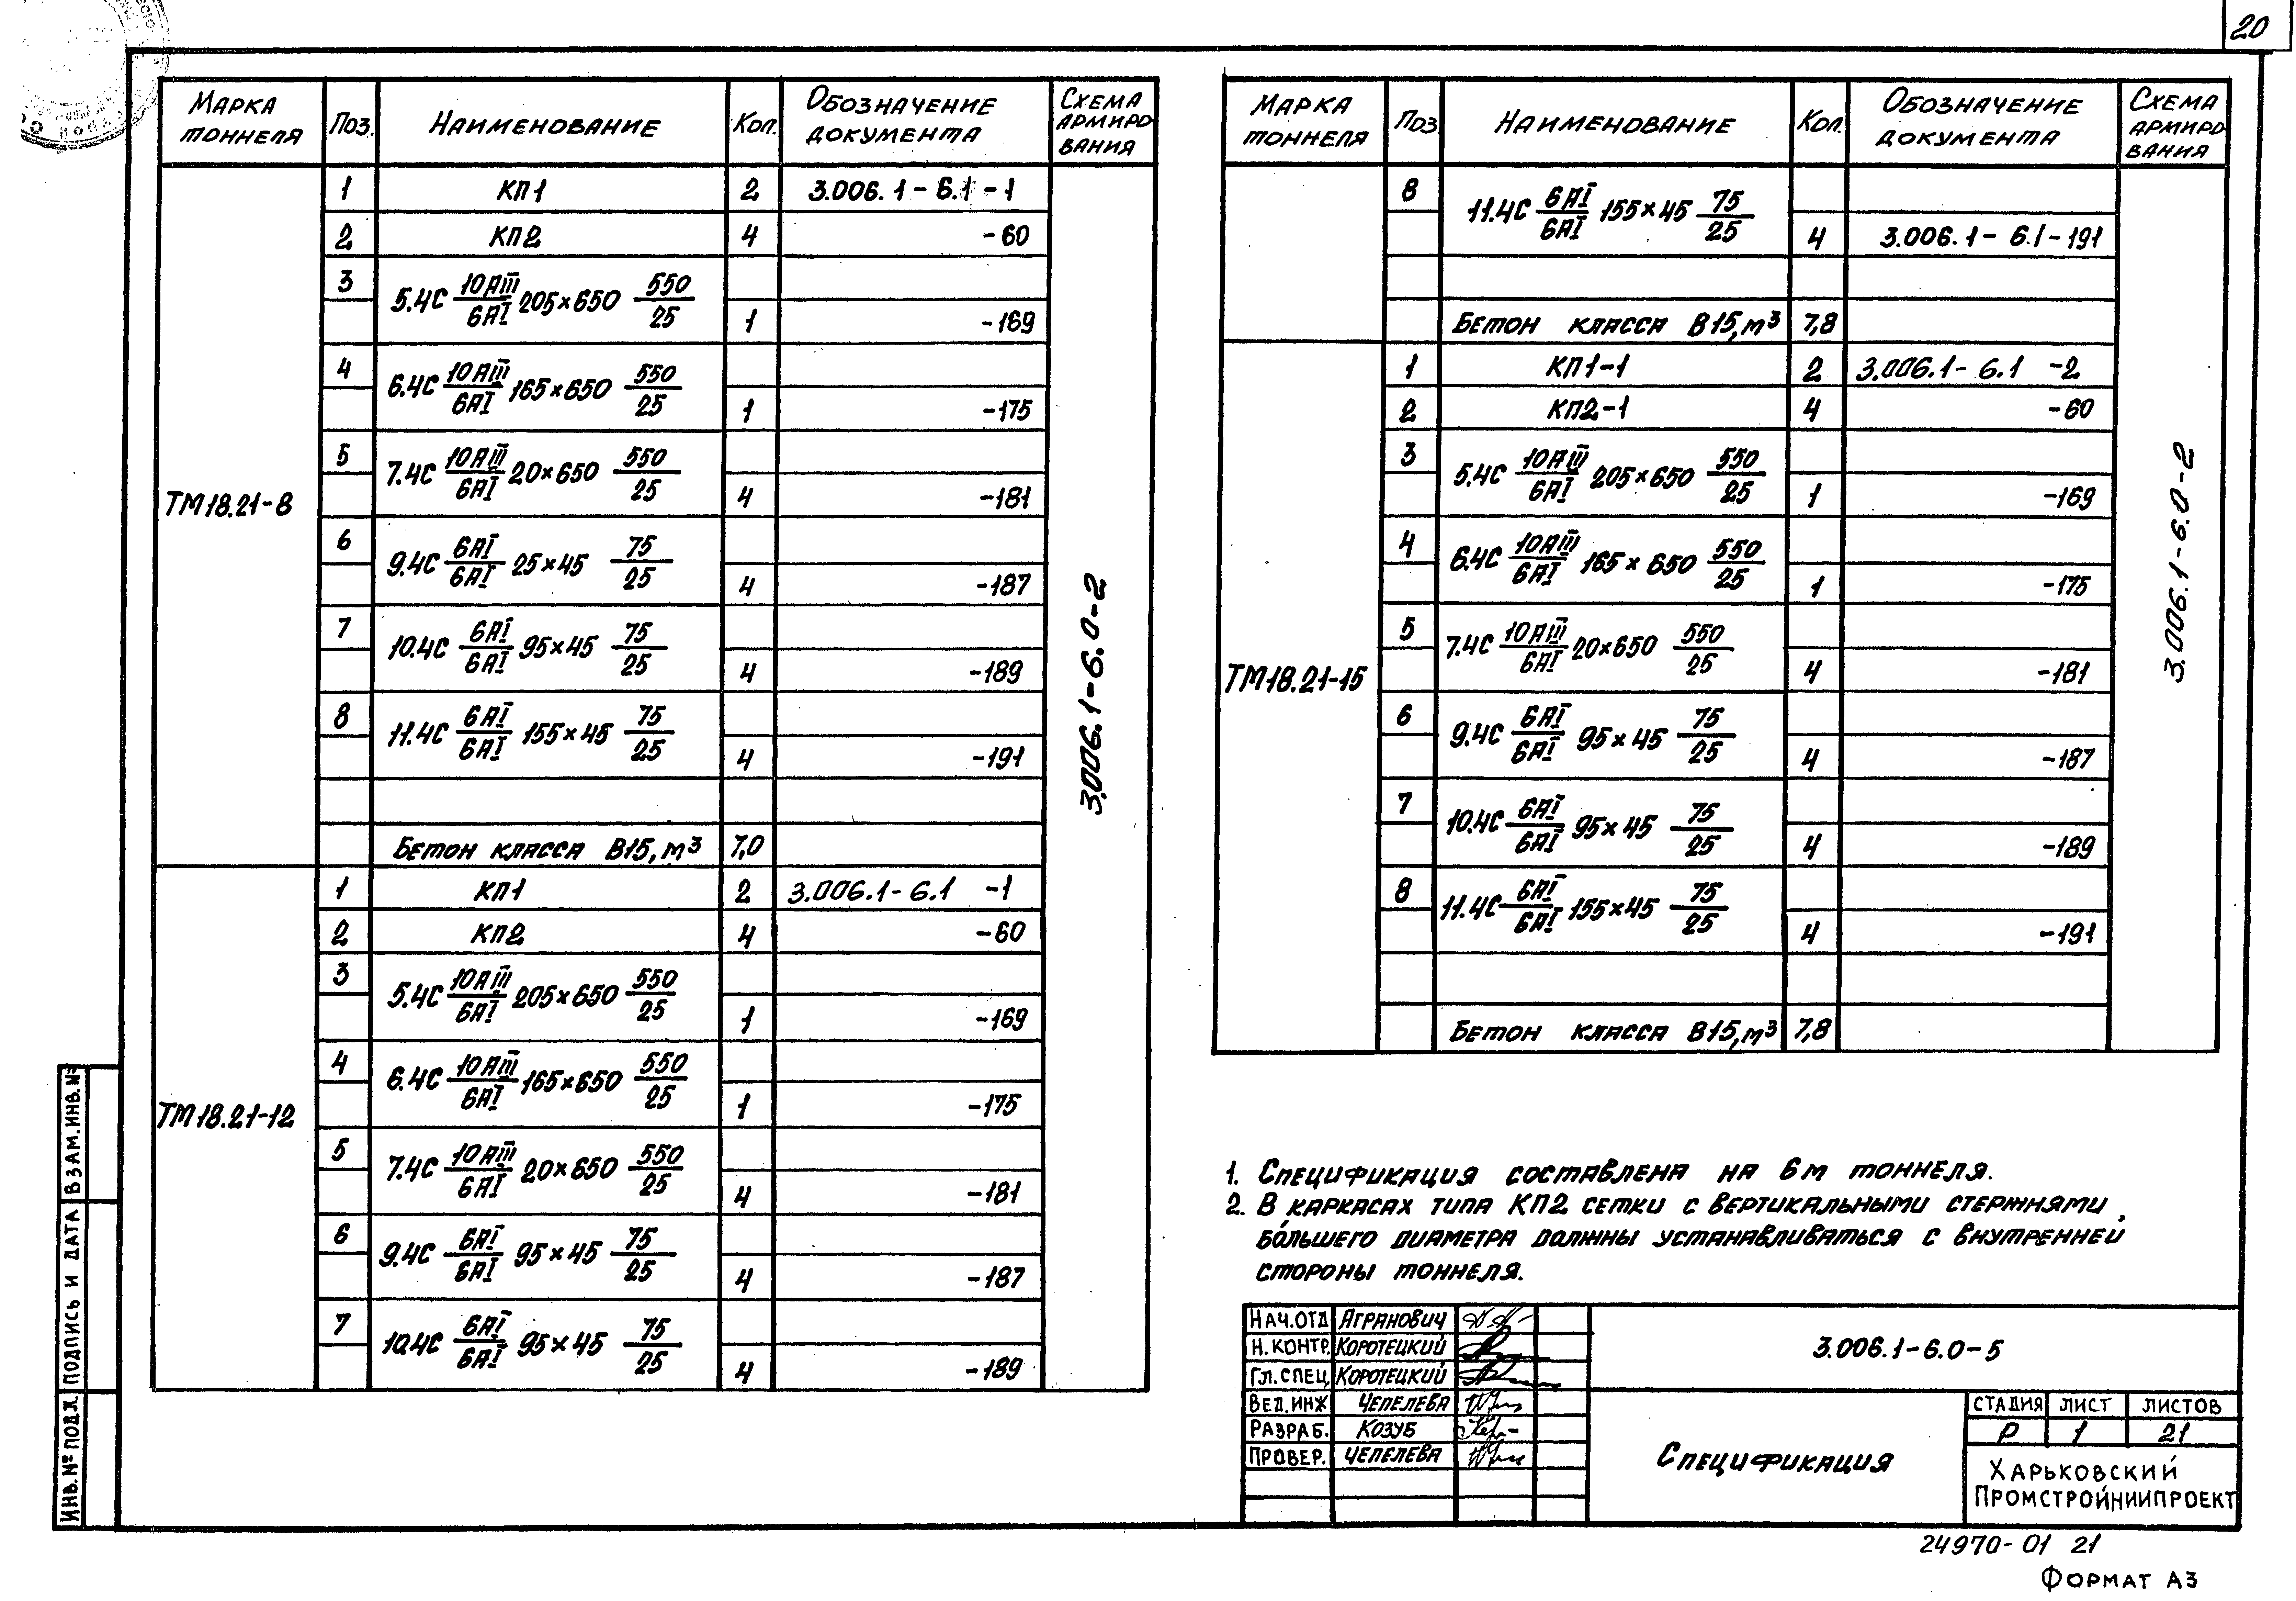 20
Марка тоннеля Поз. Наименование Кол. Обозначение документа Схема армирования
ТМ18.21-8
1 КП1 2 3.006.1-6.1-1
2 КП2 4 -60
3 5.4С 10АIII/6АI 205×650 550/25 1 -169
4 6.4С 10АIII/6АI 165×650 550/25 1 -175
5 7.4С 10АIII/6АI 20×650 550/25 4 -181
6 9.4С 6АI/6АI 25×45 75/25 4 -187
7 10.4С 6АI/6АI 95×45 75/25 4 -189
8 11.4С 6АI/6АI 155×45 75/25 4 -191
Бетон класса В15, м³ 7,0
ТМ18.21-12
1 КП1 2 3.006.1-6.1 -1
2 КП2 4 -60
3 5.4С 10АIII/6АI 205×650 550/25 1 -169
4 6.4С 10АIII/6АI 165×650 550/25 1 -175
5 7.4С 10АIII/6АI 20×650 550/25 4 -181
6 9.4С 6АI/6АI 95×45 75/25 4 -187
7 10.4С 6АI/6АI 95×45 75/25 4 -189
3.006.1-6.0-2
Марка тоннеля Поз. Наименование Кол. Обозначение документа Схема армирования
8 11.4С 6АI/6АI 155×45 75/25 4 3.006.1-6.1-191
Бетон класса В15, м³ 7,8
ТМ18.21-15
1 КП1-1 2 3.006.1-6.1 -2
2 КП2-1 4 -60
3 5.4С 10АIII/6АI 205×650 550/25 1 -169
4 6.4С 10АIII/6АI 165×650 550/25 1 -175
5 7.4С 10АIII/6АI 20×650 550/25 4 -181
6 9.4С 6АI/6АI 95×45 75/25 4 -187
7 10.4С 6АI/6АI 95×45 75/25 4 -189
8 11.4С 6АI/6АI 155×45 75/25 4 -191
Бетон класса В15, м³ 7,8
3.006.1-6.0-2
1. Спецификация составлена на 6м тоннеля.
2. В каркасах типа КП2 сетки с вертикальными стержнями
большего диаметра должны устанавливаться с внутренней
стороны тоннеля.
Нач.отд Агранович
Н.контр. Коротецкий
Гл.спец. Коротецкий
Вед.инж Чепелева
Разраб. Козуб
Провер. Чепелева
3.006.1-6.0-5
Спецификация
Стадия Лист Листов
Р 1 21
Харьковский
Промстройниипроект
Инв.№ подл. Подпись и дата Взам.инв.№
24970-01 21
Формат А3